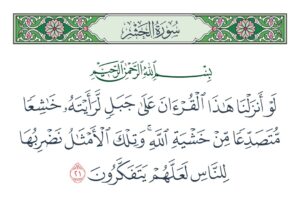 سُورَةُ الحَشْرِ
بِسْمِ ٱللَّهِ ٱلرَّحْمَٰنِ ٱلرَّحِيمِ
لَوْ أَنزَلْنَا هَٰذَا ٱلْقُرْءَانَ عَلَىٰ جَبَلٍ لَّرَأَيْتَهُۥ خَٰشِعًا
مُّتَصَدِّعًا مِّنْ خَشْيَةِ ٱللَّهِ ۚ وَتِلْكَ ٱلْأَمْثَٰلُ نَضْرِبُهَا
لِلنَّاسِ لَعَلَّهُمْ يَتَفَكَّرُونَ ٢١